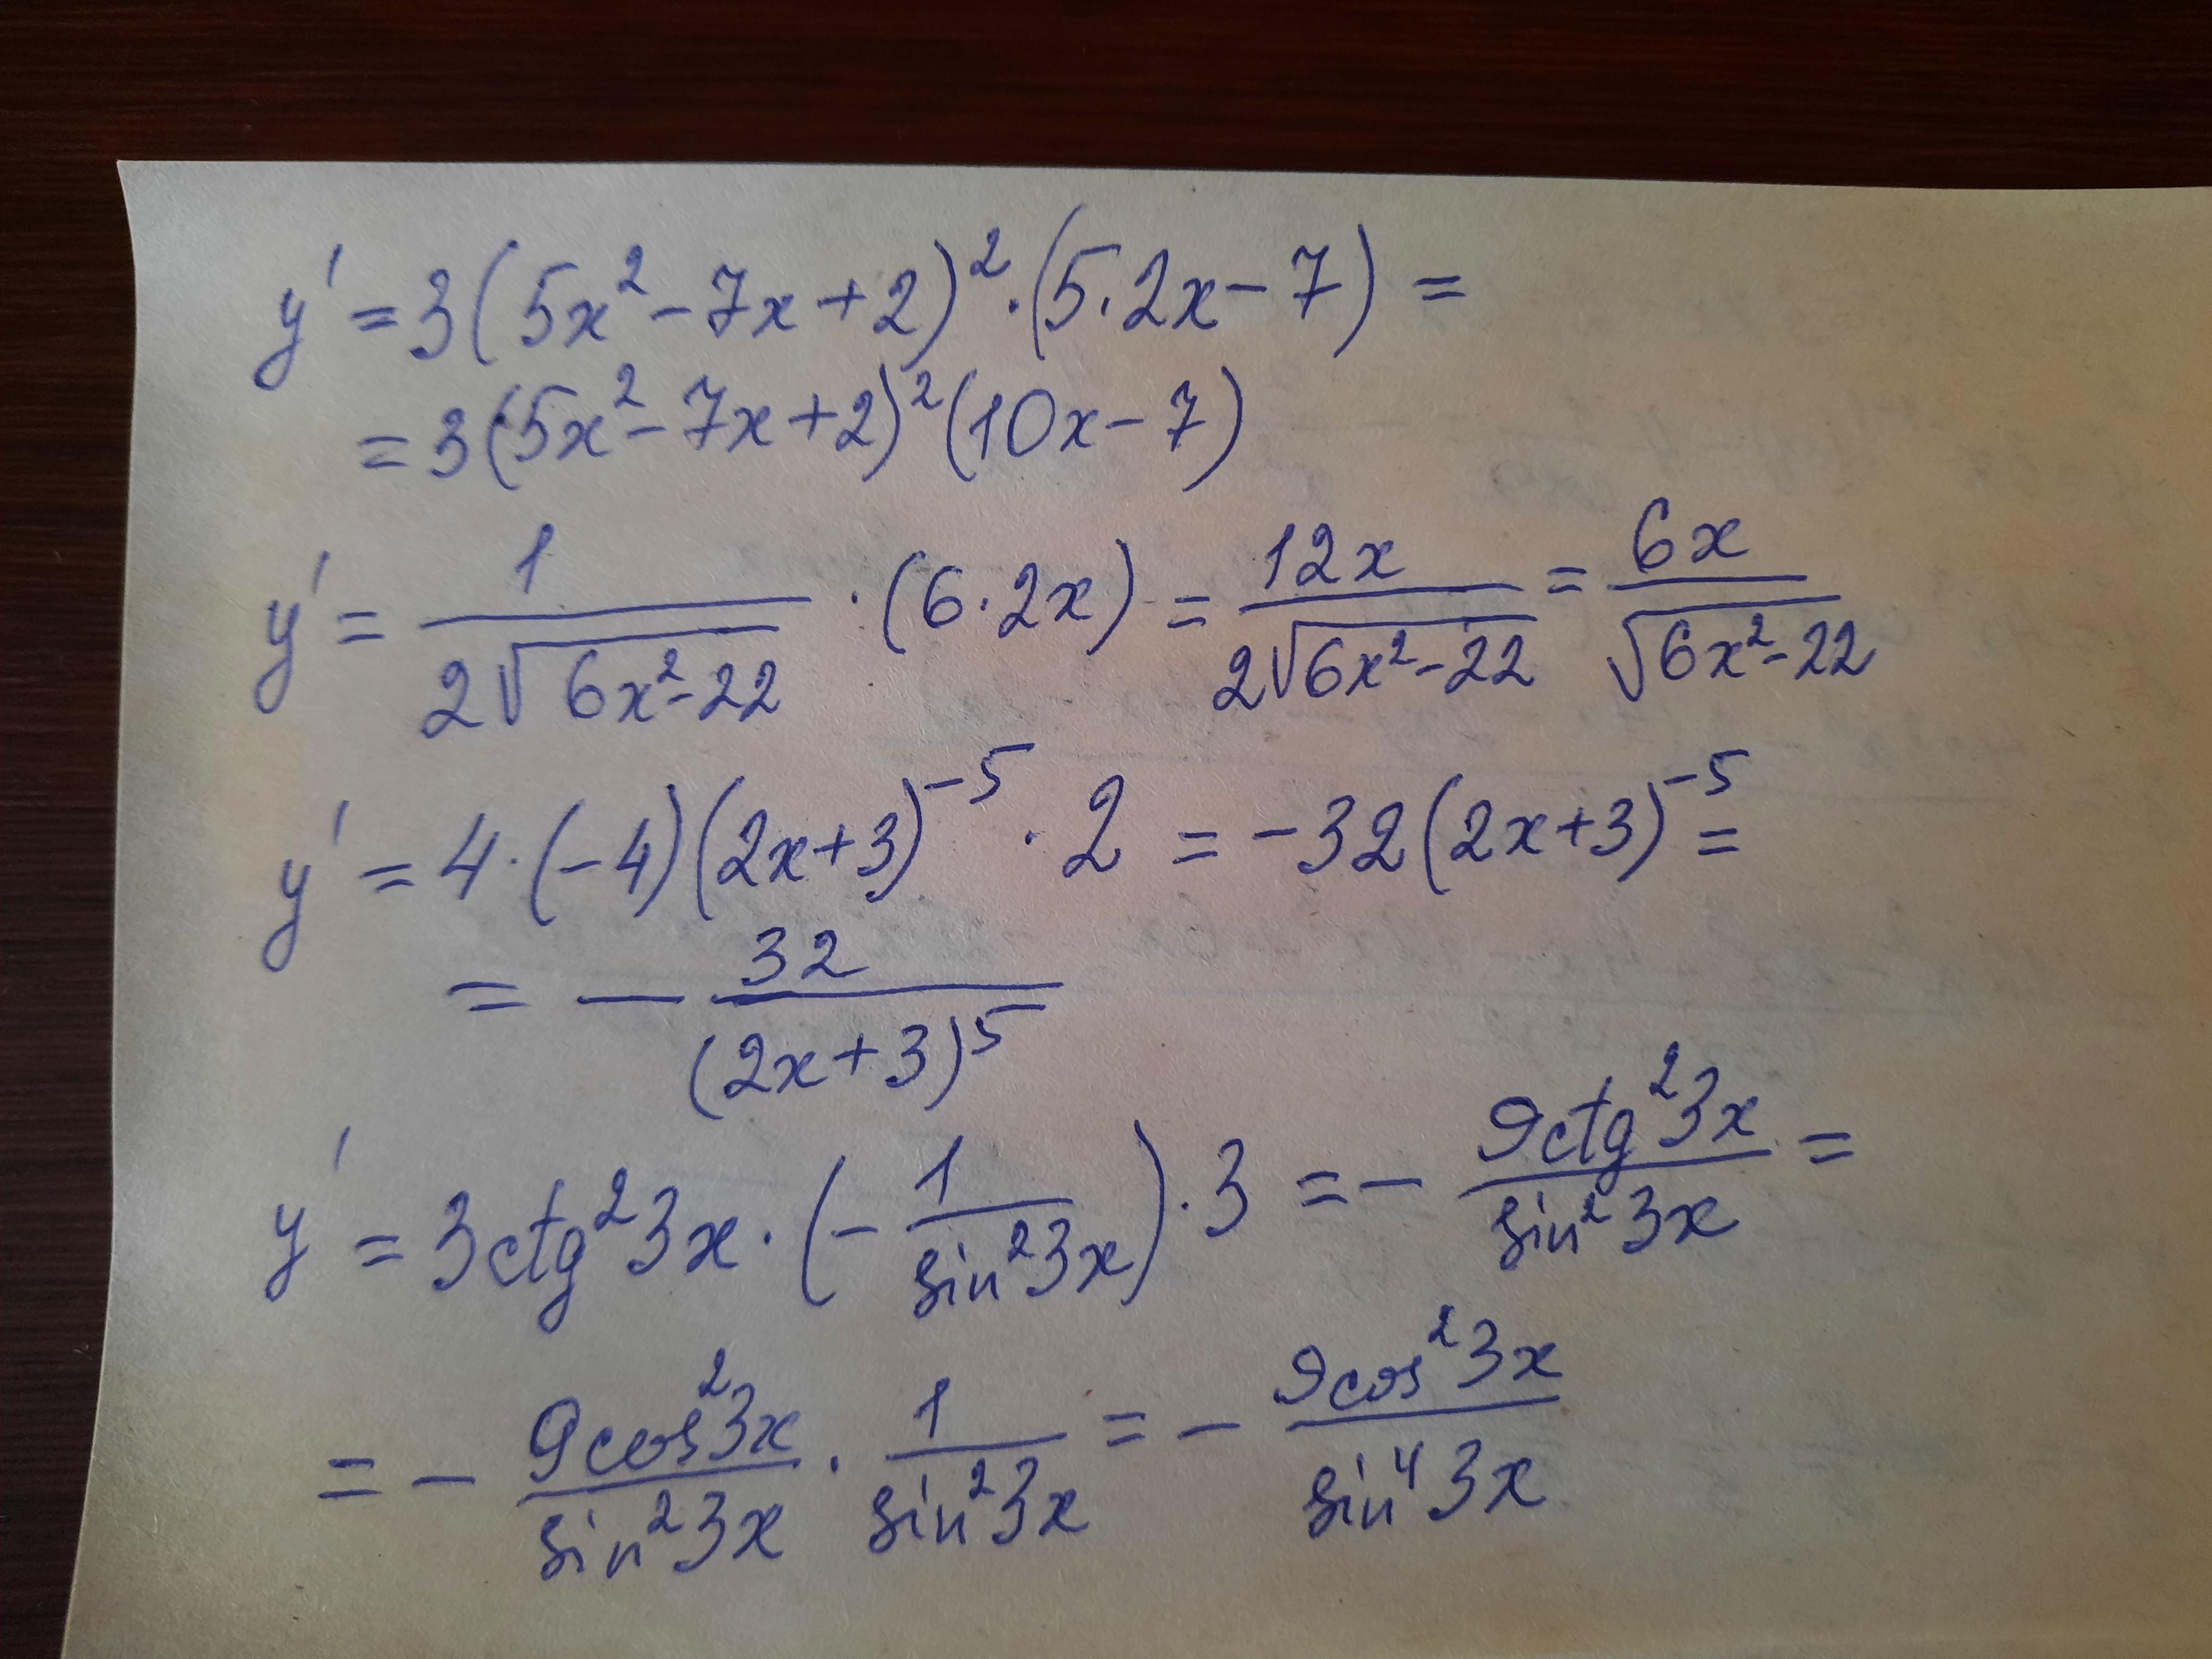 y' = 3(5x² - 7x + 2)² · (5·2x - 7) =
= 3(5x² - 7x + 2)² (10x - 7)
y' = 1/(2√(6x² - 22)) · (6·2x) = 12x/(2√(6x² - 22)) = 6x/√(6x² - 22)
y' = 4·(-4)(2x+3)⁻⁵ · 2 = -32(2x+3)⁻⁵ =
= - 32/(2x+3)⁵
y' = 3ctg²3x · (- 1/sin²3x) · 3 = - 9ctg²3x/sin²3x =
= - 9cos²3x/sin²3x · 1/sin²3x = - 9cos²3x/sin⁴3x